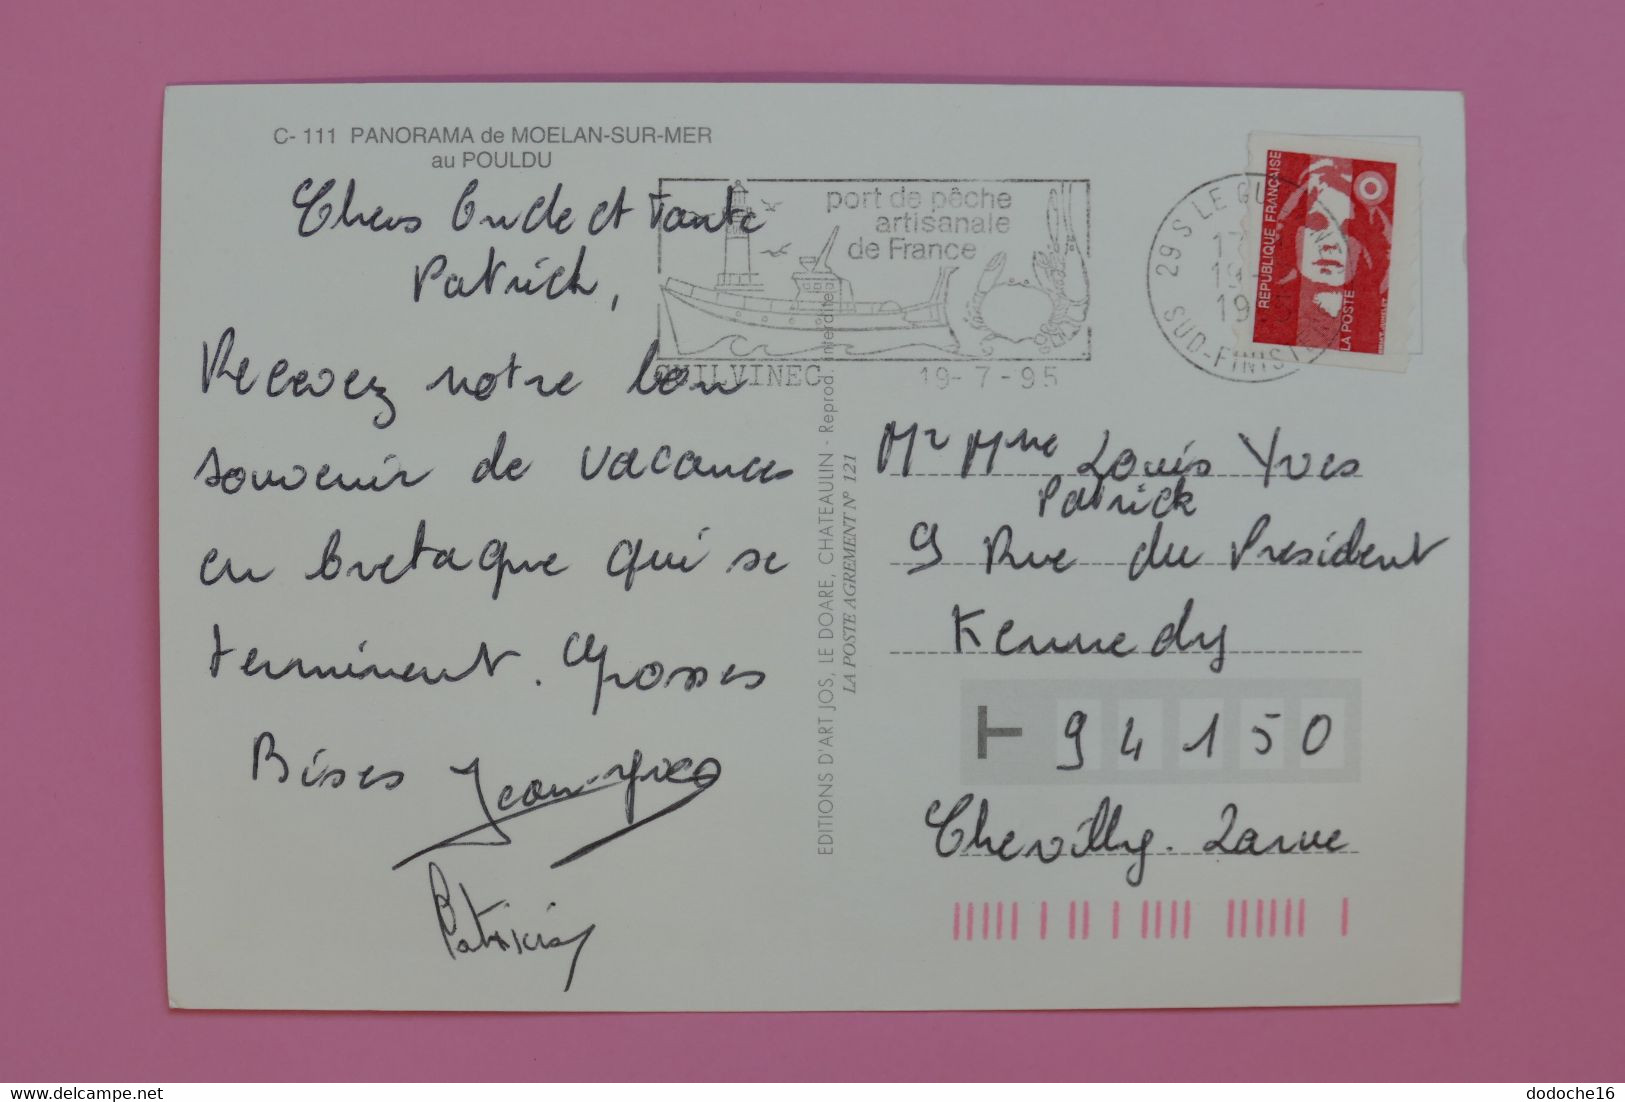 C- 111 PANORAMA de MOELAN-SUR-MER
au POULDU
Chers Oncle et Tante
Patrick,
Recevez notre bon
souvenir de vacances
en bretagne qui se
terminent. Grosses
Bises Jean-Yves
Patricia
port de pêche
artisanale
de France
GUILVINEC 19-7-95
29 S LE GU
17
19-
19
SUD-FINIST
REPUBLIQUE FRANÇAISE
LA POSTE
EDITIONS D'ART JOS, LE DOARE, CHATEAULIN - Reprod. interdite
LA POSTE AGREMENT N° 121
Mr Mme Louis Yves
Patrick
9 Rue du President
Kennedy
T 94150
Chevilly-Larue
dodoche16